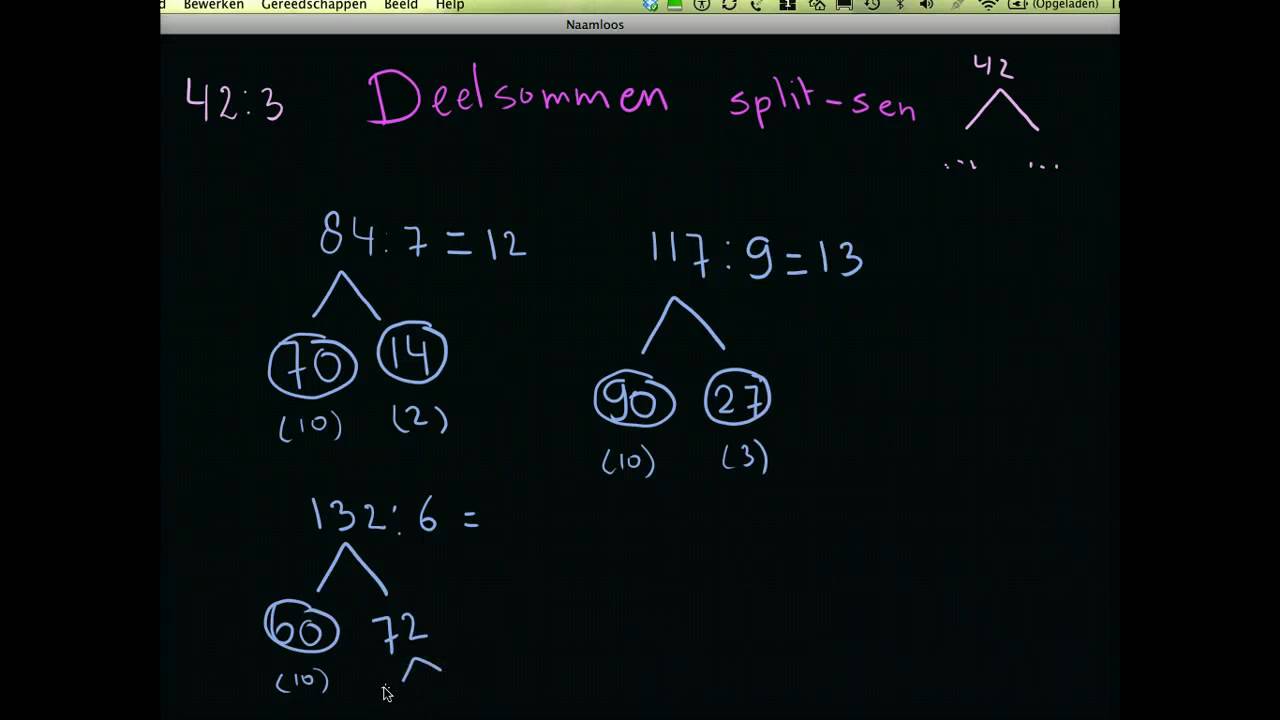 Bewerken Gereedschappen Beeld Help (Opgeladen)
Naamloos
42:3 Deelsommen split-sen 42
... ...
84:7=12 117:9=13
70 14
(10) (2)
90 27
(10) (3)
132:6=
60 72
(10)